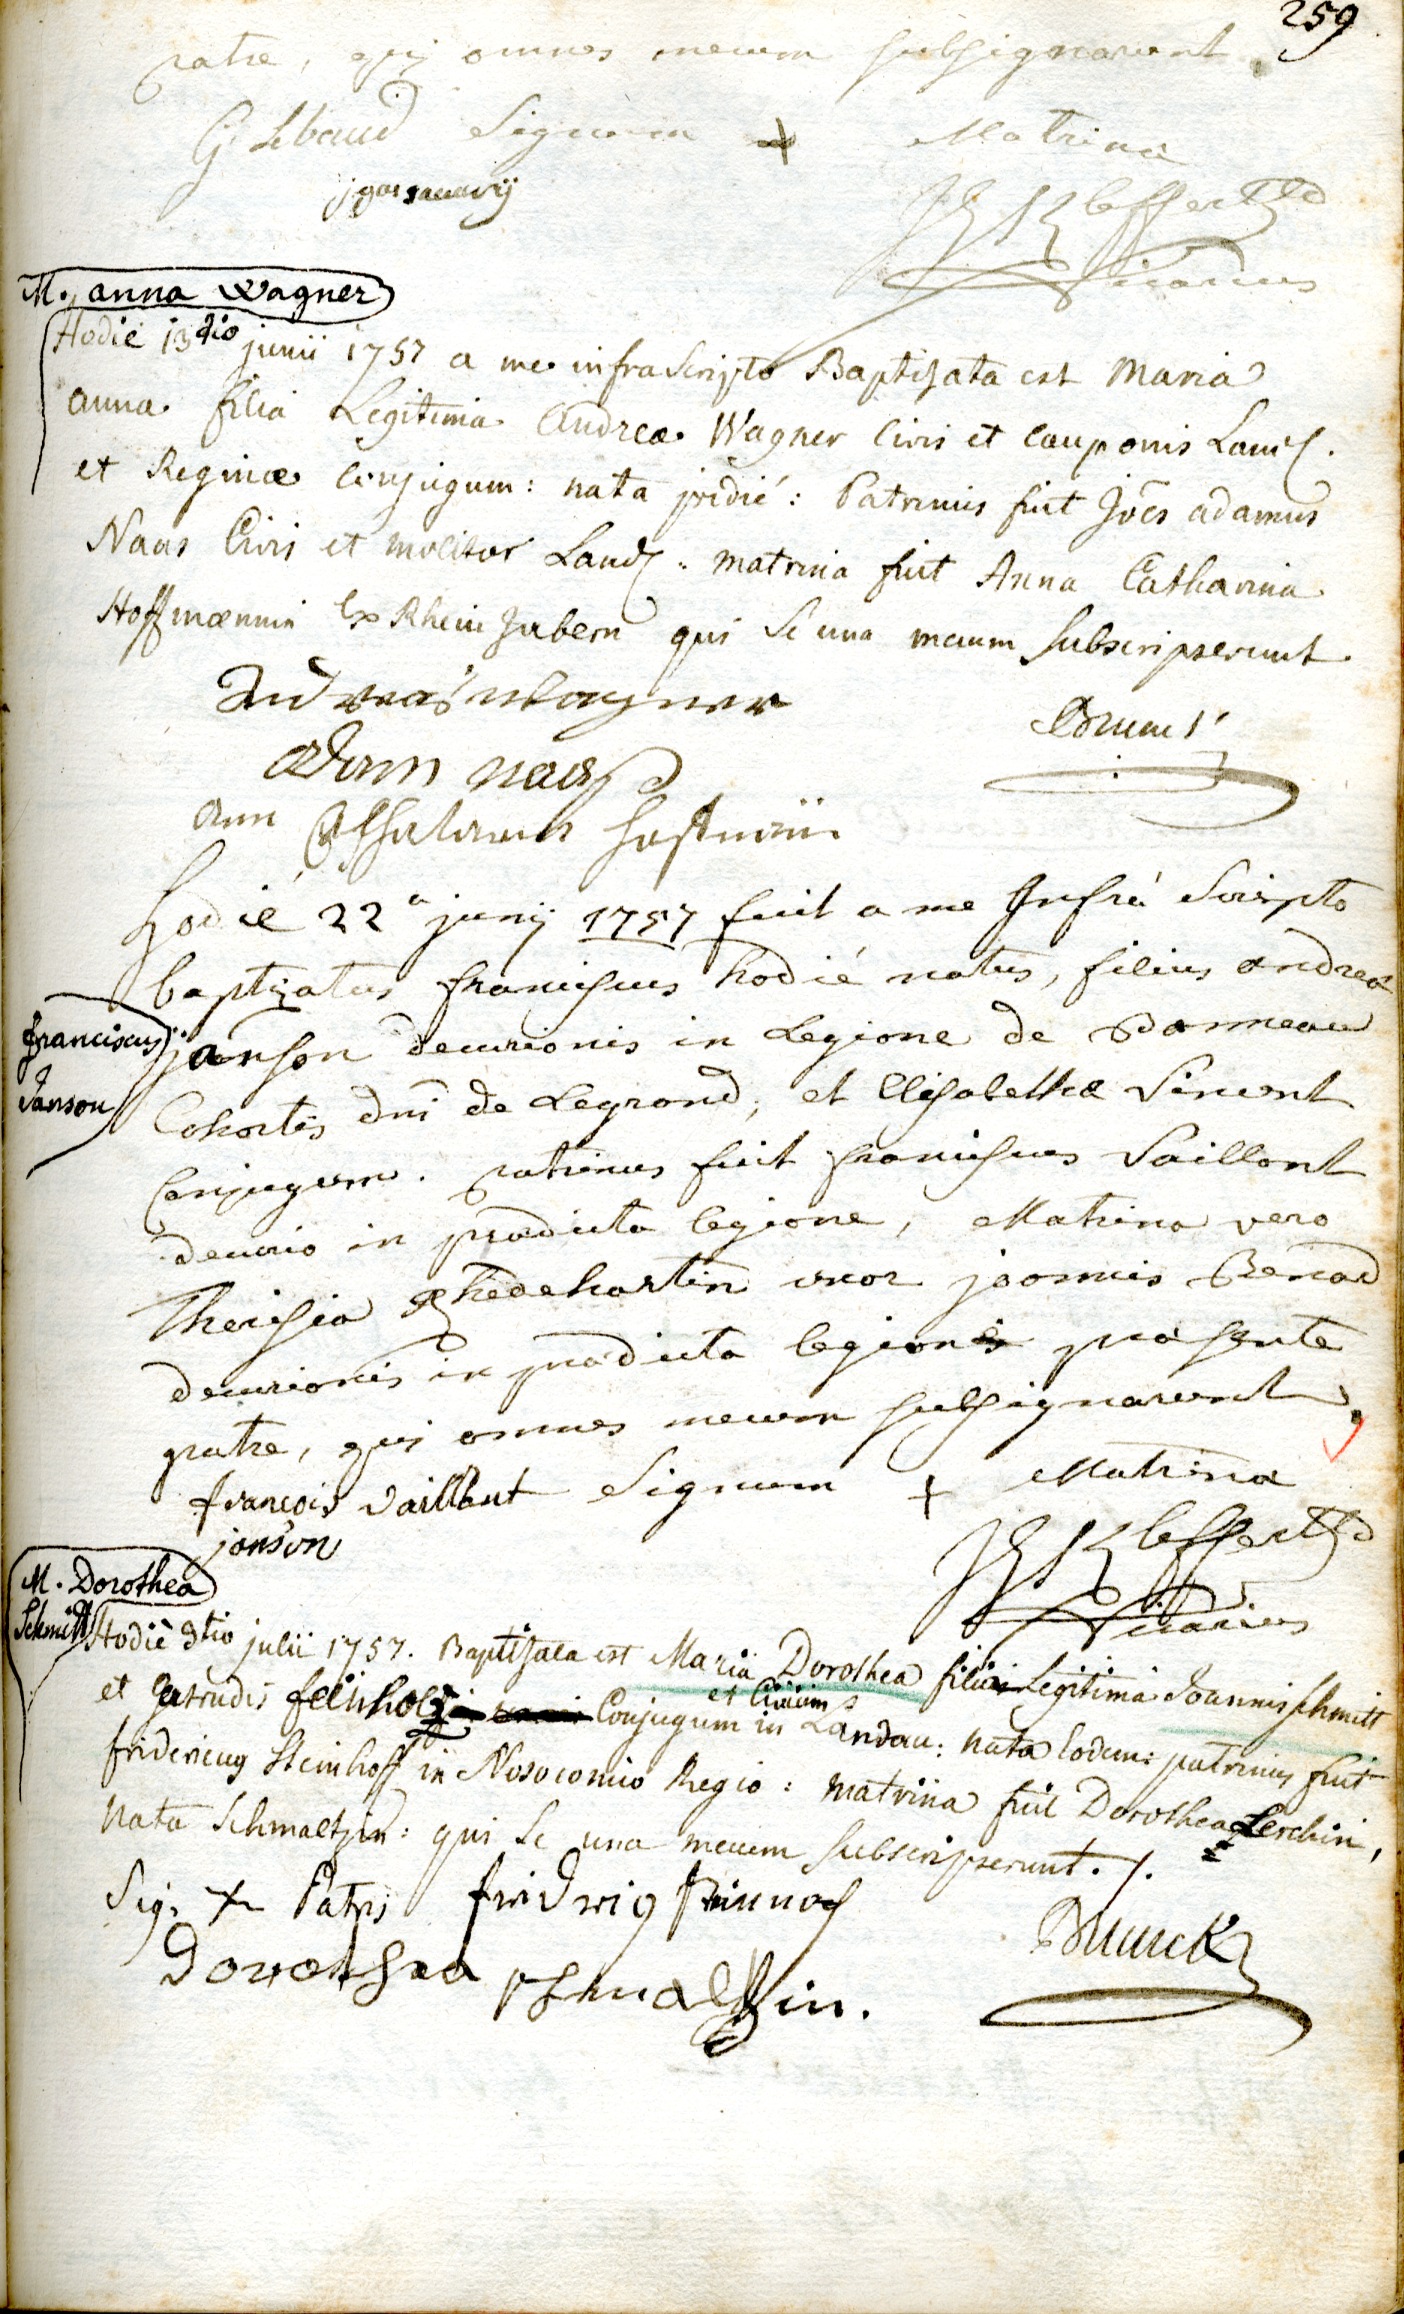 259
patre, qui omnes mecum subsignarunt.
G Lebaud Signum + Matrinæ
JG Kleffert
Vicarius
M. anna Wagner
Hodie 13tio junii 1757 a me infrascripto Baptisata est Maria
anna filia Legitima Andreæ Wagner Civis et Cauponis Land.
et Reginæ Conjugum: nata pridié: Patrinus fuit Joēs adamus
Naas Civis et molitor Land: matrina fuit Anna Catharina
Hoffmænnin Ex Rhein Zabern qui se una mecum subscripserunt.
Andreas Wagner
Adam naas
Brunck
hodié 22a junij 1757 fuit a me Infrá Scripto
baptizatus franciscus hodié natus, filius andreæ
franciscus Janson
janson decurionis in Legione de
Cohortis dni de Legrand, et Elisabethæ Vincent
Conjugum. patrinus fuit franciscus Vaillant
decurio in prædicta legione, Matrina vero
Theresia uxor joannis Benard
decurionis in prædicta legione præsente
patre, qui omnes mecum subsignarunt,
françois vaillant Signum + Matrinæ
janson
JG Kleffert
Vicarius
M. Dorothea Schmitt
Hodiè 3tio julii 1757. Baptisata est Maria Dorothea filia Legitima Joannis Schmitt
et Gertrudis Conjugum et Civium in Landau: nata Eodem: patrinus fuit
fridericus Steinhoff in Nosocomio Regio: matrina fuit Dorothea Lerchin,
Nata Schmaltzin: qui se una mecum subscripserunt. /.
Sig. + Patris
Dorothea schmaltzin.
Brunck